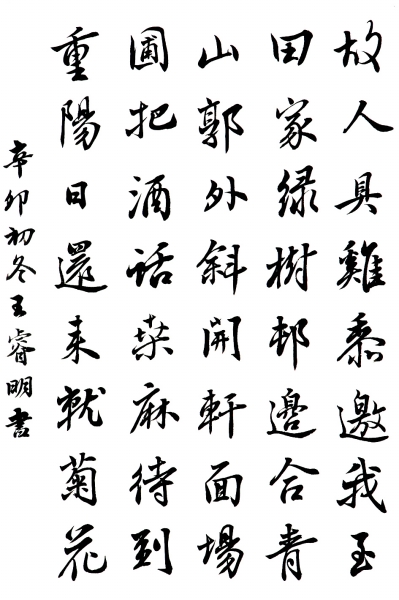 故人具雞黍邀我至
田家綠樹邨邊合青
山郭外斜開軒面場
圃把酒話桒麻待到
重陽日還来就菊花
辛卯初冬王睿明書